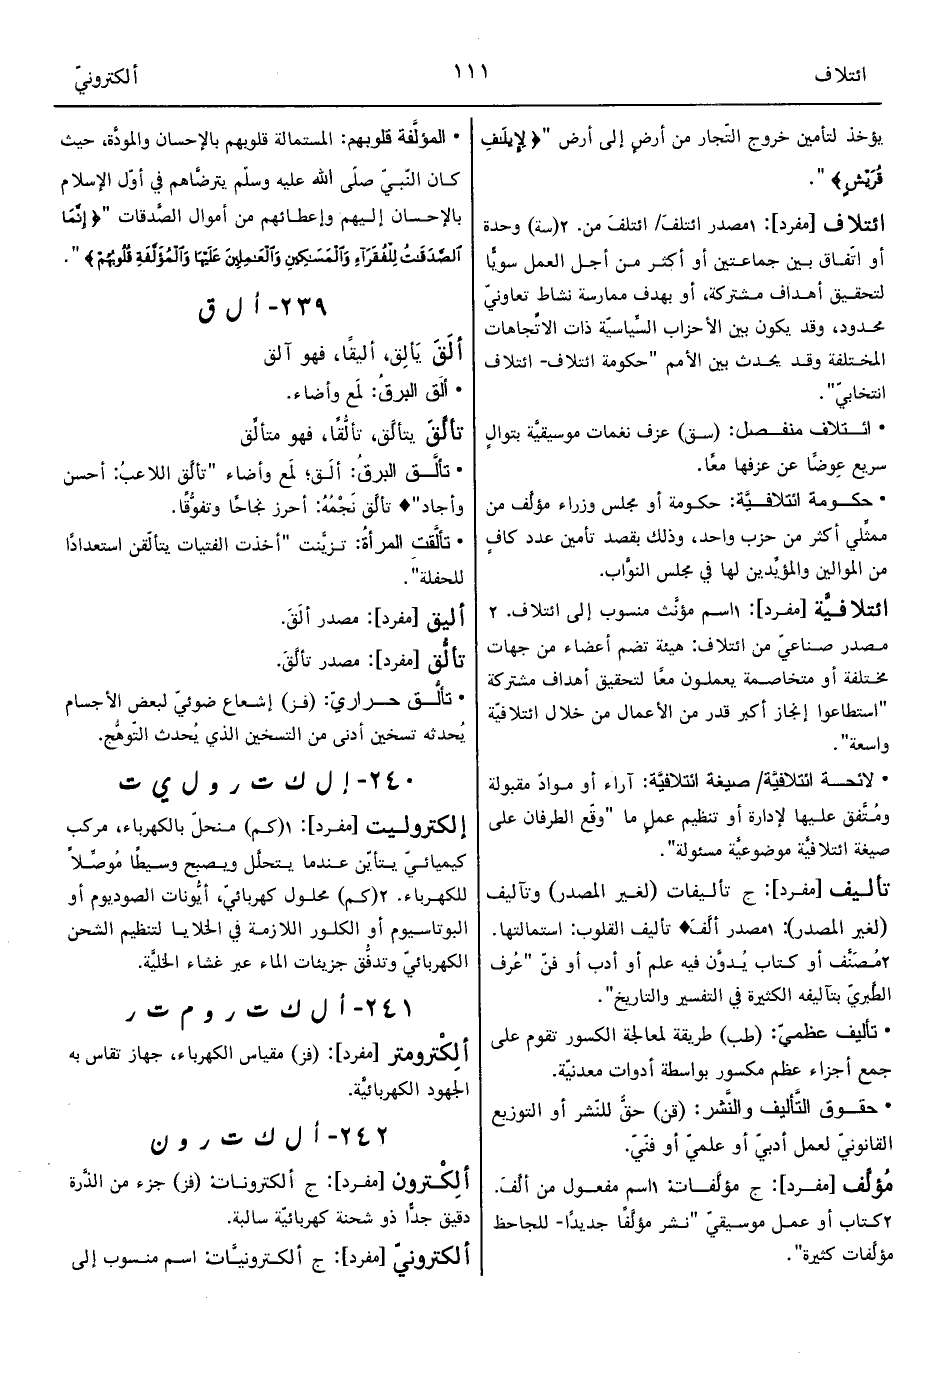 ائتلاف
١١١
ألكترونيّ
يؤخذ لتأمين خروج التّجار من أرضٍ إلى أرض "﴿ لِإِيلَٰفِ
قُرَيْشٍ﴾ ".
ائتلاف [مفرد]: ١مصدر ائتلفَ/ ائتلفَ من. ٢(سة) وحدة
أو اتّفاق بين جماعتين أو أكثر من أجل العمل سويًّا
لتحقيق أهداف مشتركة، أو بهدف ممارسة نشاط تعاونيّ
محدود، وقد يكون بين الأحزاب السِّياسيّة ذات الاتّجاهات
المختلفة وقد يحدث بين الأمم "حكومة ائتلاف- ائتلاف
انتخابيّ".
• ائتلاف منفصل: (سق) عزف نغمات موسيقيَّة بتوالٍ
سريع عِوضًا عن عزفها معًا.
• حكومة ائتلافيَّة: حكومة أو مجلس وزراء مؤلّف من
ممثِّلي أكثر من حزب واحد، وذلك بقصد تأمين عدد كافٍ
من الموالين والمؤيِّدين لها في مجلس النوَّاب.
ائتلافيَّة [مفرد]: ١اسم مؤنَّث منسوب إلى ائتلاف. ٢
مصدر صناعيّ من ائتلاف: هيئة تضم أعضاء من جهات
مختلفة أو متخاصمة يعملون معًا لتحقيق أهداف مشتركة
"استطاعوا إنجاز أكبر قدر من الأعمال من خلال ائتلافيّة
واسعة".
• لائحة ائتلافيَّة/ صيغة ائتلافيَّة: آراء أو موادّ مقبولة
ومُتَّفق عليها لإدارة أو تنظيم عملٍ ما "وقَّع الطرفان على
صيغة ائتلافيَّة موضوعيَّة مسئولة".
تأليف [مفرد]: ج تأليفات (لغير المصدر) وتآليف
(لغير المصدر): ١مصدر ألَّفَ♦ تأليف القلوب: استمالتها.
٢مُصَنَّف أو كتاب يُدوَّن فيه علم أو أدب أو فنّ "عُرف
الطَّبريّ بتآليفه الكثيرة في التفسير والتاريخ".
• تأليف عظميّ: (طب) طريقة لمعالجة الكسور تقوم على
جمع أجزاء عظم مكسور بواسطة أدوات معدنيّة.
• حقوق التَّأليف والنَّشر: (قن) حقُّ للنّشر أو التوزيع
القانونيّ لعمل أدبيّ أو علميّ أو فنّيّ.
مُؤلَّف [مفرد]: ج مؤلَّفات: ١اسم مفعول من ألَّفَ.
٢كتاب أو عمل موسيقيّ "نشر مؤلَّفًا جديدًا- للجاحظ
مؤلَّفات كثيرة".
• المؤلَّفة قلوبهم: المستمالة قلوبهم بالإحسان والمودَّة، حيث
كان النَّبيّ صلَّى الله عليه وسلَّم يترضَّاهم في أوّل الإسلام
بالإحسان إليهم وإعطائهم من أموال الصَّدقات "﴿ إِنَّمَا
ٱلصَّدَقَٰتُ لِلْفُقَرَآءِ وَٱلْمَسَٰكِينِ وَٱلْعَٰمِلِينَ عَلَيْهَا وَٱلْمُؤَلَّفَةِ قُلُوبُهُمْ﴾ ".
٢٣٩- أ ل ق
ألَقَ يَألِق، أليقًا، فهو آلق
• ألَق البرقُ: لَمع وأضاء.
تألَّقَ يتألَّق، تألُّقًا، فهو متألِّق
• تألَّق البرقُ: ألَق؛ لَمع وأضاء "تألَّق اللاعبُ: أحسن
وأجاد"♦ تألَّق نَجْمُهُ: أحرز نجاحًا وتفوُّقًا.
• تألَّقتِ المرأةُ: تزيَّنت "أخذت الفتيات يتألّقن استعدادًا
للحفلة".
أليق [مفرد]: مصدر ألَقَ.
تألُّق [مفرد]: مصدر تألَّقَ.
• تألُّق حراريّ: (فز) إشعاع ضوئيّ لبعض الأجسام
يُحدثه تسخين أدنى من التسخين الذي يُحدث التّوهُّج.
٢٤٠- إ ل ك ت ر و ل ي ت
إلكتروليت [مفرد]: ١(كم) منحلّ بالكهرباء، مركب
كيميائيّ يتأيّن عندما يتحلَّل ويصبح وسيطًا مُوصِّلاً
للكهرباء. ٢(كم) محلول كهربائيّ، أيُونات الصوديوم أو
البوتاسيوم أو الكلور اللازمة في الخلايا لتنظيم الشحن
الكهربائيّ وتدفُّق جزيئات الماء عبر غشاء الخليَّة.
٢٤١- أ ل ك ت ر و م ت ر
ألِكْترومتر [مفرد]: (فز) مقياس الكهرباء، جهاز تقاس به
الجهود الكهربائيَّة.
٢٤٢- أ ل ك ت ر و ن
ألِكْترون [مفرد]: ج ألكترونات: (فز) جزء من الذَّرة
دقيق جدًّا ذو شحنة كهربائيّة سالبة.
ألكترونيّ [مفرد]: ج ألكترونيَّات: اسم منسوب إلى